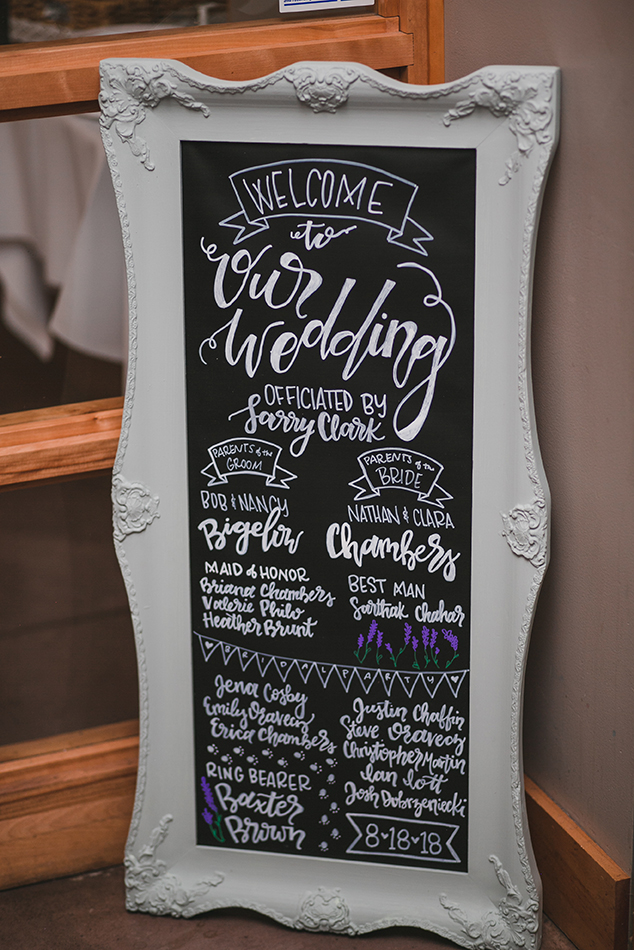 WELCOME
to
Our
Wedding
OFFICIATED BY
Larry Clark
PARENTS of the
GROOM
BOB & NANCY
Bigelow
PARENTS of the
BRIDE
NATHAN & CLARA
Chambers
MAID of HONOR
Briana Chambers
Valerie Philo
Heather Brunt
BEST MAN
Sarthak Chahar
BRIDAL PARTY
Jena Cosby
Emily Oravecz
Erica Chambers
RING BEARER
Baxter
Brown
Justin Chaffin
Steve Oravecz
Christopher Martin
Ian Lott
Josh Dobrzeniecki
8♥18♥18